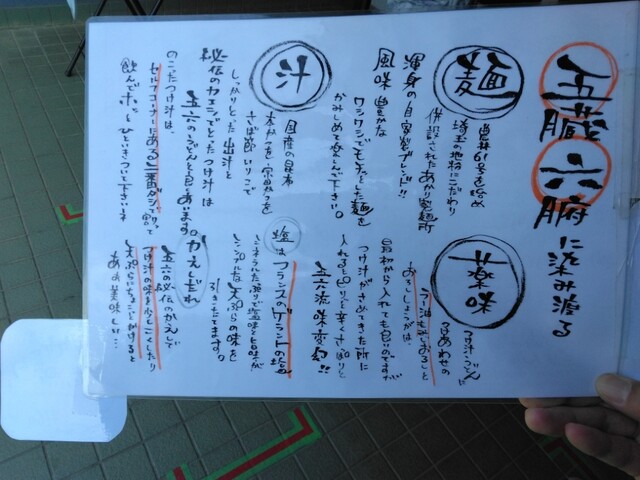 五臓六腑に染み渡る
麺
農林61号を始め
埼玉の地粉にこだわり
併設されたあかり製麺所
渾身の自家製ブレンド!!
風味豊かな
ワシワシでもちっとした麺を
かみしめて楽しんで下さい。
汁
国産の昆布
本かつを、宗田かつを
さば節、いりこで
しっかりとった出汁と
秘伝のカエシでとったつけ汁は
五六のうどんと良くあいます。
のこったつけ汁は、
セルフコーナーにある一番ダシで割って
飲んでホッとひといきついて下さいネ
薬味
つけ汁、うどんに
あわせの
ラー油とおろし
おろしょうがは、
最初から入れても良いのですが
つけ汁がさめてきた所に
入れるとぴりっと辛くさっぱりと
五六流味の変幻!!
塩はフランスゲランドの塩
シンプルに天ぷらの味を
引きたてます。
かえしだれ
五六の秘伝のかえしで
つけ汁の味を少しこくしたり
天ぷらにちょこっとかけると
あぁ美味しい…